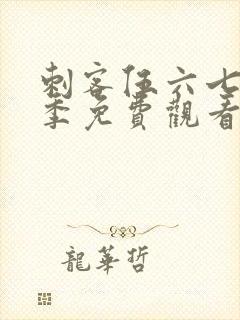 刺客伍六七
季免費觀看
龍華哲